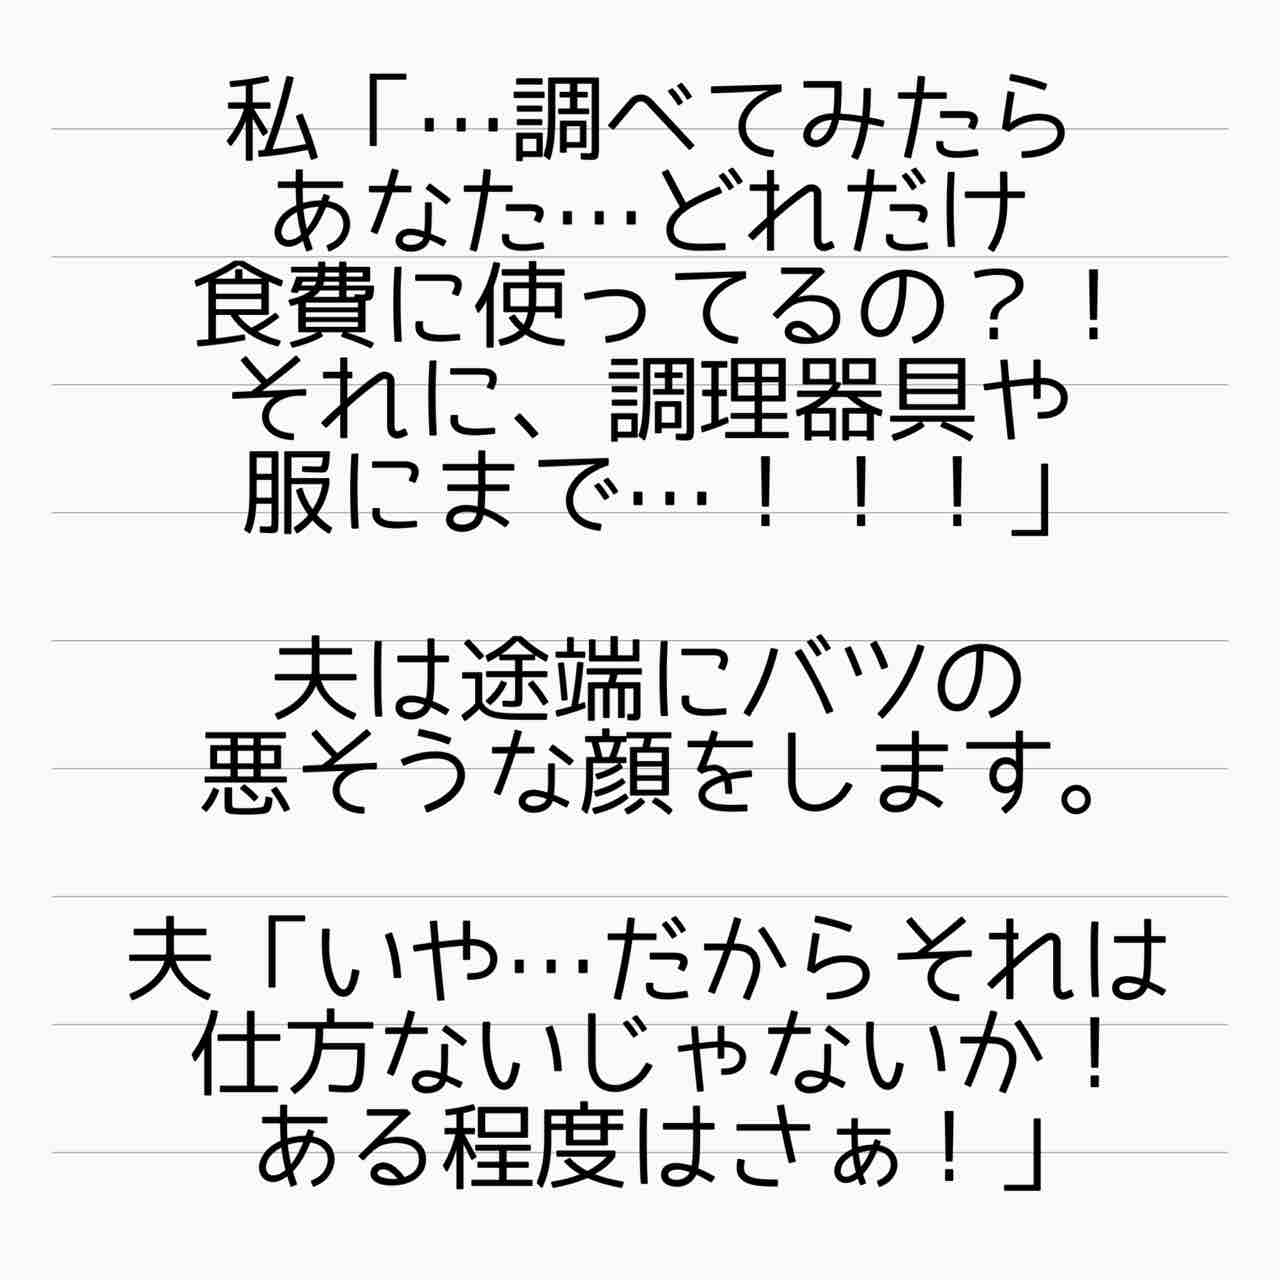 私「…調べてみたら
あなた…どれだけ
食費に使ってるの？！
それに、調理器具や
服にまで…！！！」
夫は途端にバツの
悪そうな顔をします。
夫「いや…だからそれは
仕方ないじゃないか！
ある程度はさぁ！」